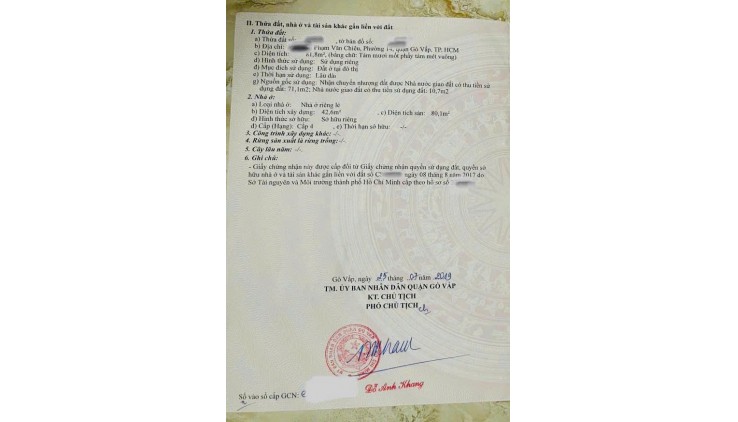 II. Thửa đất, nhà ở và tài sản khác gắn liền với đất
1. Thửa đất:
a) Thửa đất , tờ bản đồ số:
b) Địa chỉ: Phạm Văn Chiêu, Phường 14, quận Gò Vấp, TP. HCM
c) Diện tích: 81,8m², (bằng chữ: Tám mươi mốt phẩy tám mét vuông)
d) Hình thức sử dụng: Sử dụng riêng
đ) Mục đích sử dụng: Đất ở tại đô thị
e) Thời hạn sử dụng: Lâu dài
g) Nguồn gốc sử dụng: Nhận chuyển nhượng đất được Nhà nước giao đất có thu tiền sử
dụng đất: 71,1m2; Nhà nước giao đất có thu tiền sử dụng đất: 10,7m2
2. Nhà ở:
a) Loại nhà ở: Nhà ở riêng lẻ
b) Diện tích xây dựng: 42,6m² , c) Diện tích sàn: 80,1m²
d) Hình thức sở hữu: Sở hữu riêng
đ) Cấp (Hạng): Cấp 4 , e) Thời hạn sở hữu: -/-
3. Công trình xây dựng khác: -/-
4. Rừng sản xuất là rừng trồng: -/-
5. Cây lâu năm: -/-
6. Ghi chú:
- Giấy chứng nhận này được cấp đổi từ Giấy chứng nhận quyền sử dụng đất, quyền sở
hữu nhà ở và tài sản khác gắn liền với đất số C ngày 08 tháng 8 năm 2017 do
Sở Tài nguyên và Môi trường thành phố Hồ Chí Minh cấp theo hồ sơ số
Gò Vấp, ngày 25 tháng 07 năm 2019
TM. ỦY BAN NHÂN DÂN QUẬN GÒ VẤP
KT. CHỦ TỊCH
PHÓ CHỦ TỊCH
Đỗ Anh Khang
Số vào sổ cấp GCN: